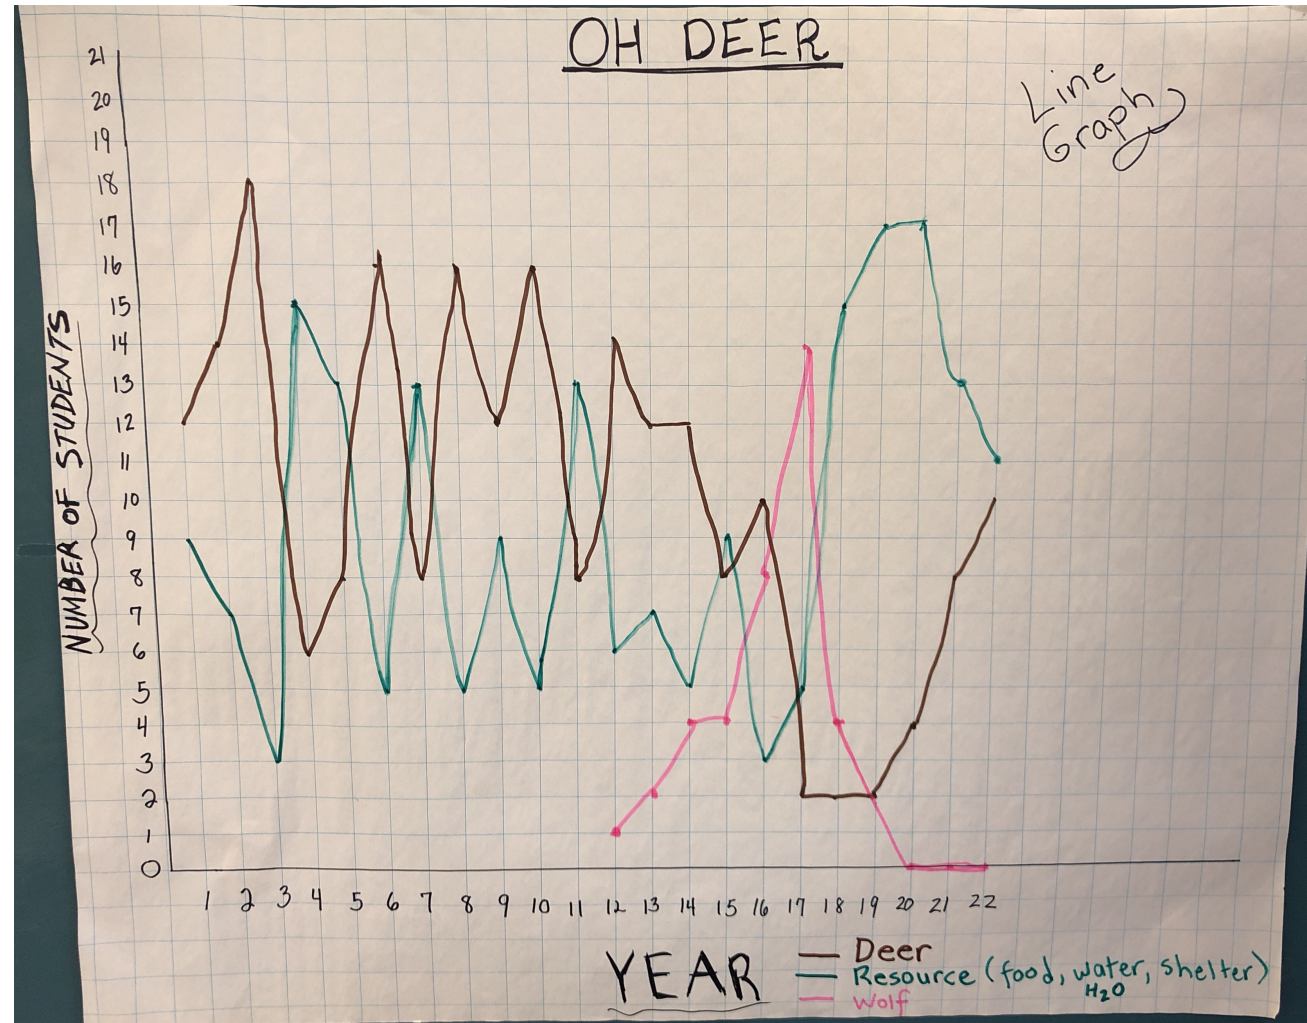 OH DEER
Line
Graph
NUMBER OF STUDENTS
21
20
19
18
17
16
15
14
13
12
11
10
9
8
7
6
5
4
3
2
1
0
1 2 3 4 5 6 7 8 9 10 11 12 13 14 15 16 17 18 19 20 21 22
YEAR
Deer
Resource (food, water, shelter)
H2O
Wolf